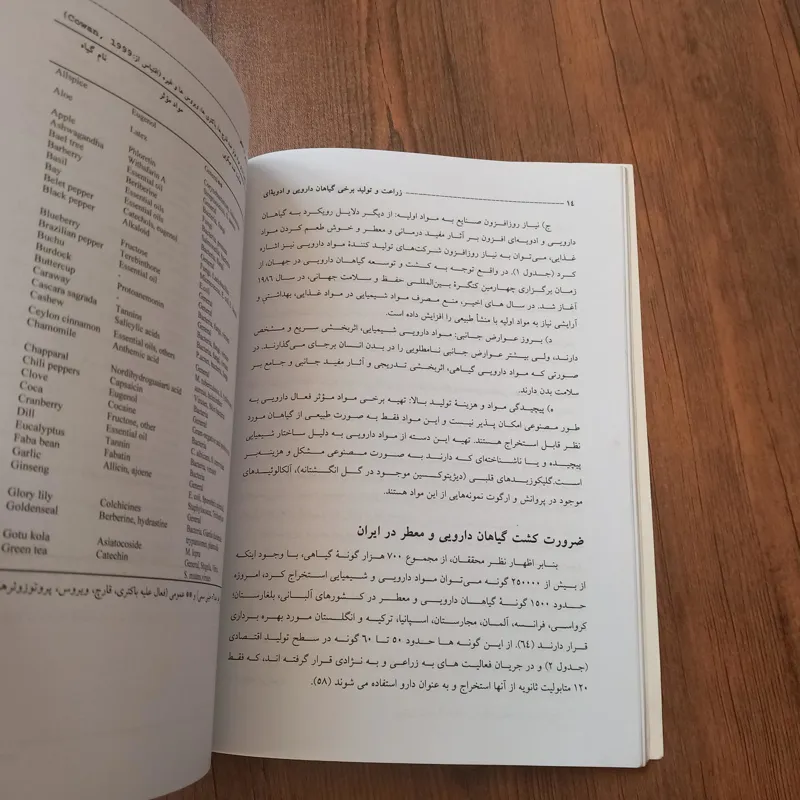 ۱۴ زراعت و تولید برخی گیاهان دارویی و ادویه‌ای
ج) نیاز روزافزون صنایع به مواد اولیه: از دیگر دلایل رویکرد به گیاهان
دارویی و ادویه‌ای افزون بر آثار مفید درمانی و معطر و خوش طعم کردن مواد
غذایی، می‌توان به نیاز روزافزون شرکت‌های تولید کنندهٔ مواد دارویی نیز اشاره
کرد (جدول ۱). در واقع توجه به کشت و توسعه گیاهان دارویی در جهان، از
زمان برگزاری چهارمین کنگرهٔ بین‌المللی حفظ و سلامت جهانی، در سال ۱۹۸۶
آغاز شد. در سال های اخیر، منع مصرف مواد شیمیایی در مواد غذایی، بهداشتی و
آرایشی نیاز به مواد اولیه با منشأ طبیعی را افزایش داده است.
د) بروز عوارض جانبی: مواد دارویی شیمیایی، اثربخشی سریع و مشخص
دارند، ولی بیشتر عوارض جانبی نامطلوبی را در بدن انسان برجای می‌گذارند. در
صورتی که مواد دارویی گیاهی، اثربخشی تدریجی و آثار مفید جانبی و جامع بر
سلامت بدن دارند.
ه) پیچیدگی مواد و هزینهٔ تولید بالا: تهیه برخی مواد مؤثر فعال دارویی به
طور مصنوعی امکان پذیر نیست و این مواد فقط به صورت طبیعی از گیاهان مورد
نظر قابل استخراج هستند. تهیه این دسته از مواد دارویی به دلیل ساختار شیمیایی
پیچیده و یا ناشناخته‌ای که دارند به صورت مصنوعی مشکل و هزینه‌بر
است.گلیکوزیدهای قلبی (دیژیتوکسین موجود در گل انگشتانه)، آلکالوئیدهای
موجود در پروانش و ارگوت نمونه‌هایی از این مواد هستند.
ضرورت کشت گیاهان دارویی و معطر در ایران
بنابر اظهار نظر محققان، از مجموع ۷۰۰ هزار گونهٔ گیاهی، با وجود اینکه
از بیش از ۲۵۰۰۰۰ گونه می‌توان مواد دارویی و شیمیایی استخراج کرد، امروزه
حدود ۱۵۰۰ گونهٔ گیاهان دارویی و معطر در کشورهای آلبانی، بلغارستان؛
کرواسی، فرانسه، آلمان، مجارستان، اسپانیا، ترکیه و انگلستان مورد بهره برداری
قرار دارند (۶۴). از این گونه ها حدود ۵۰ تا ۶۰ گونه در سطح تولید اقتصادی
(جدول ۲) و در جریان فعالیت های به زراعی و به نژادی قرار گرفته اند، که فقط
۱۲۰ متابولیت ثانویه از آنها استخراج و به عنوان دارو استفاده می شوند (۵۸).
(Cowan, 1999
نام گیاه
مواد مؤثر
Allspice Eugenol
Aloe Latex
Apple Phloretin
Ashwagandha Withafarin A
Bael tree Essential oil
Barberry Berberine
Basil Essential oils
Bay Essential oils
Belet pepper Catechols, eugenol
Black pepper Alkaloid
Blueberry Fructose
Brazilian pepper Terebinthone
Buchu Essential oil
Burdock
Buttercup Protoanemonin
Caraway
Cascara sagrada Tannins
Cashew Salicylic acids
Ceylon cinnamon Essential oils, others
Chamomile Anthemic acid
Chapparal Nordihydroguaiarti acid
Chili peppers Capsaicin
Clove Eugenol
Coca Cocaine
Cranberry Fructose, other
Dill Essential oil
Eucalyptus Tannin
Faba bean Fabatin
Garlic Allicin, ajoene
Ginseng
Glory lily Colchicines
Goldenseal Berberine, hydrastine
Gotu kola Asiatocoside
Green tea Catechin
عمومی (فعال علیه باکتری، قارچ، ویروس، پروتوزوئرها